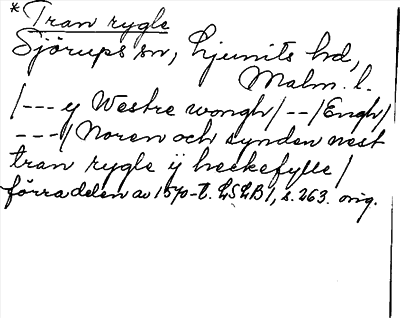 *Tran rygle
Sjörups sn, Ljunits hd,
Malm. l.
/--- y Westre wongh/--/Engh/
---/Noren och synden nest
tran rygle ÿ heckefylle/
förra delen av 1570-t. LSLB1, s. 263. orig.